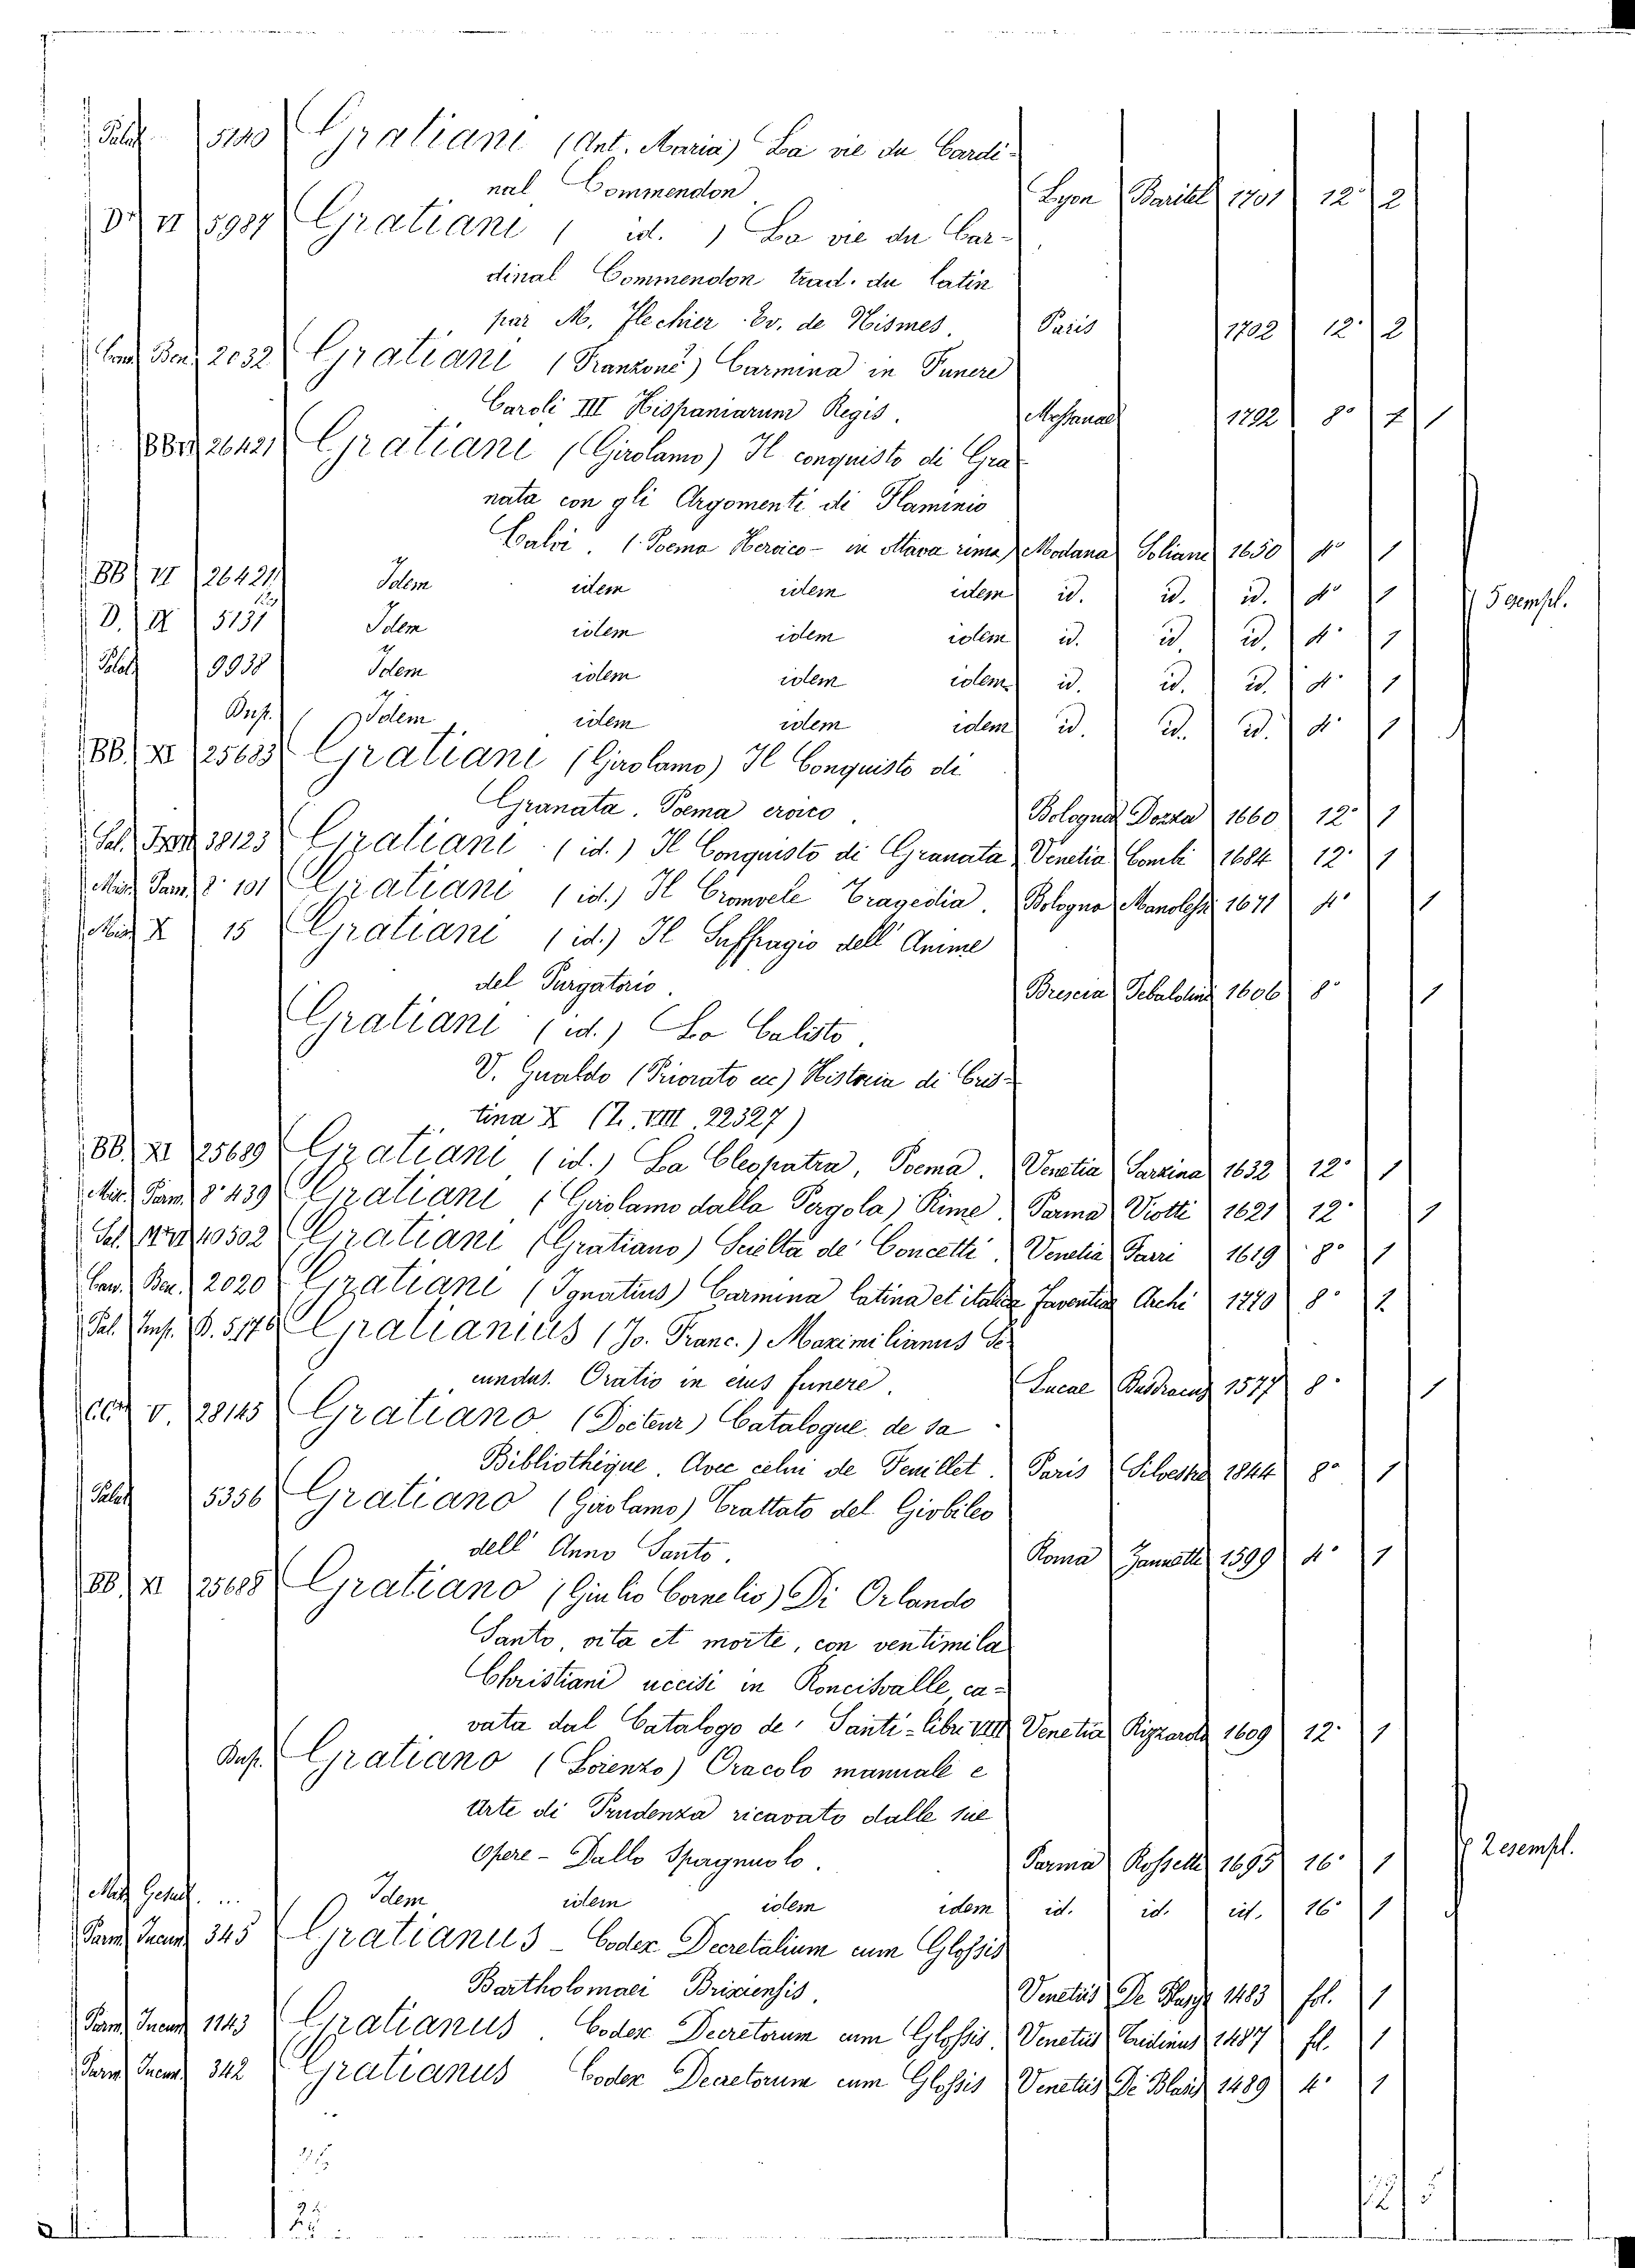 Palat. 5140 Gratiani (Ant. Maria) La vie du Cardi-
nal Commendon Lyon Baritel 1701 12° 2
D. VI 5987 Gratiani ( id. ) La vie du Car-
dinal Commendon trad. du latin
par M. Flechier Ev. de Nismes. Paris 1702 12° 2
Ben. 2032 Gratiani (Franzone) Carmina in Funere
Caroli III Hispaniarum Regis. Messanae 1792 8° 1
BB VI 26421 Gratiani (Girolamo) Il conquisto di Gra
nata con gli Argomenti di Flaminio
Calvi. (Poema Heroico - in ottava rima) Modana Soliani 1650 4° 1
BB VI 26421 Idem idem idem idem id. id. id. 4° 1 5 esempl.
D. II 5131 Idem idem idem idem id. id. id. 4° 1
Palat 9938 Idem idem idem idem id. id. id. 4° 1
Busp. Idem idem idem idem id. id. id. 4° 1
BB. XI 25683 Gratiani (Girolamo) Il Conquisto di
Granata. Poema eroico. Bologna Dozza 1660 12° 1
Sal. 38123 Gratiani (id.) Il Conquisto di Granata Venetia Combi 1684 12° 1
Mis. Parm. 8° 101 Gratiani (id.) Il Cromvele Tragedia. Bologna Manolessi 1671 4° 1
Mis. X 15 Gratiani (id.) Il Suffragio dell' Anime
del Purgatorio. Brescia Sebaldini 1606 8° 1
Gratiani (id.) La Calisto.
V. Gualdo (Priorato ec) Historia di Cris-
tina X (Z. VIII. 22327)
BB. XI 25689 Gratiani (id.) La Cleopatra, Poema. Venetia Sarzina 1632 12° 1
Mis. Parm. 8° 439 Gratiani (Girolamo dalla Pergola) Rime. Parma Viotti 1621 12° 1
Sal. 40502 Gratiani (Gratiano) Scielta de' Concetti. Venetia Farri 1619 8° 1
Ben. 2020 Gratiani (Ignatius) Carmina latina et italica Faventiae Archi 1770 8° 2
Pal. B. 5176 Gratianius (Jo. Franc.) Maximilianus Se-
cundus. Oratio in eius funere. Lucae Busdracus 1577 8° 1
V. 28145 Gratiano (Docteur) Catalogue de sa
Bibliothèque. Avec celui de Feuillet. Paris Silvestre 1844 8° 1
Palat 5356 Gratiano (Girolamo) Trattato del Giobileo
dell' Anno Santo. Roma 1599 4° 1
BB. XI 25688 Gratiano (Giulio Cornelio) Di Orlando
Santo, vita et morte, con ventimila
Christiani uccisi in Roncisvalle, ca-
vata dal Catalogo de' Santi - libri VIII Venetia 1609 12° 1
Busp. Gratiano (Lorenzo) Oracolo manuale e
Arte di Prudenza ricavato dalle sue
Opere - Dallo Spagnuolo. Parma Rosseti 1695 16° 1 2 esempl.
Idem idem idem idem id. id. id. 16° 1
Parm. Incun. 345 Gratianus - Codex Decretalium cum Glossis
Bartholomaei Brixiensis. Venetiis De Blasijs 1483 fol. 1
Parm. Incun. 1143 Gratianus. Codex Decretorum cum Glossis. Venetiis Tridinus 1487 fol. 1
Parm. Incun. 342 Gratianus Codex Decretorum cum Glossis Venetiis De Blasijs 1489 4° 1